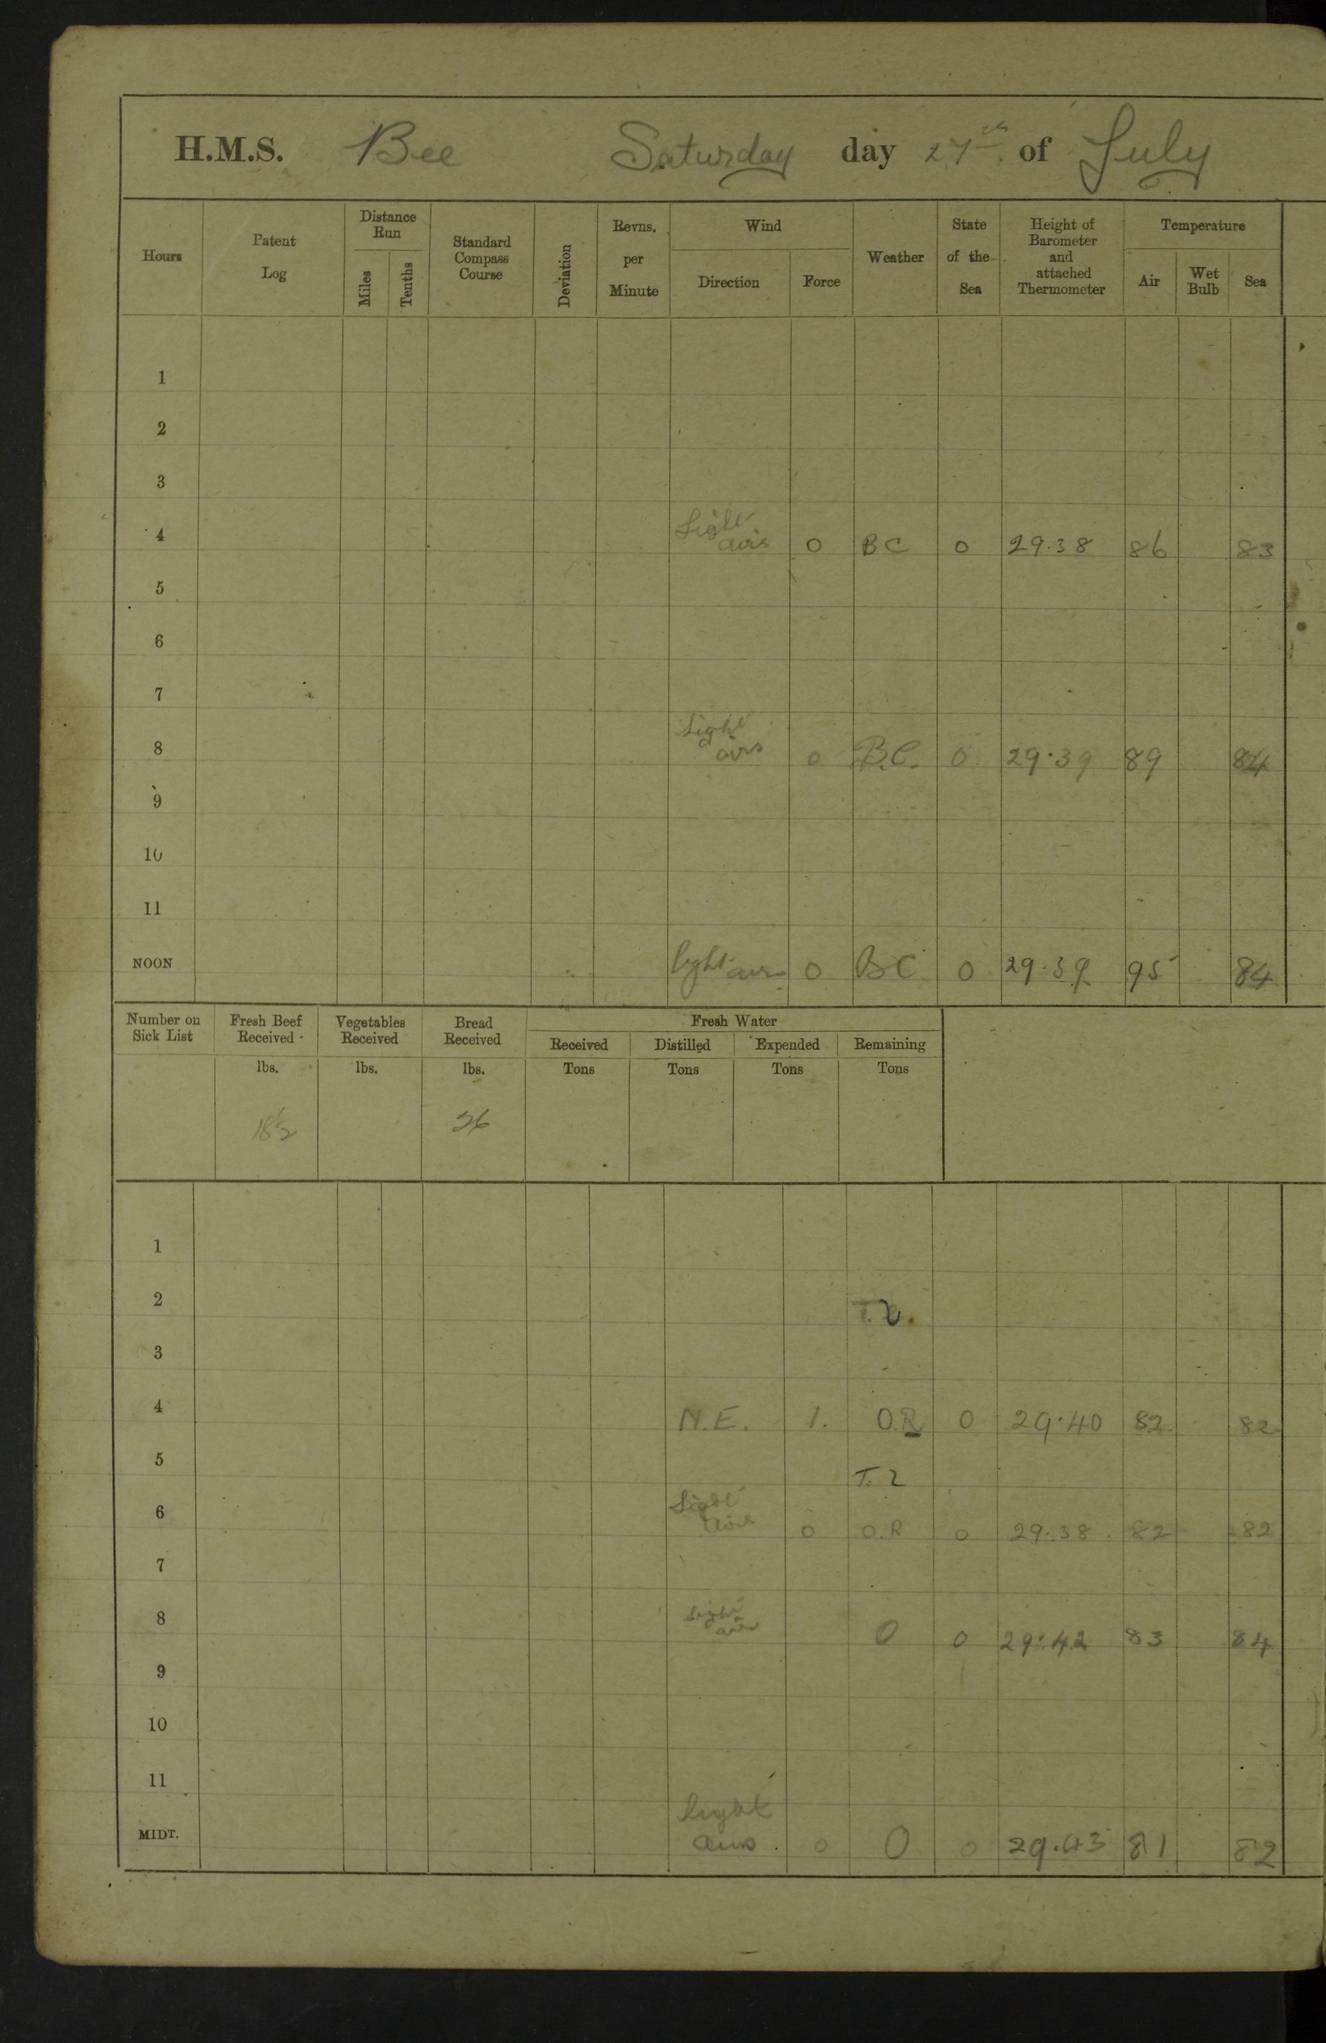 H.M.S. Bee Saturday day 27th of July
Hours Patent Log Distance Run Miles Tenths Standard Compass Course Deviation Revns. per Minute Wind Direction Force Weather State of the Sea Height of Barometer and attached Thermometer Temperature Air Wet Bulb Sea
1
2
3
4 Light airs 0 BC 0 29.38 86 83
5
6
7
8 Light airs 0 B.C. 0 29.39 89 84
9
10
11
NOON light airs 0 BC 0 29.39 95 84
Number on Sick List Fresh Beef Received Vegetables Received Bread Received Fresh Water
Received Distilled Expended Remaining
lbs. lbs. lbs. Tons Tons Tons Tons
18½ 26
1
2 T.L.
3
4 N.E. 1. O.R 0 29.40 82 82
5 T.L
6 Light airs 0 O.R 0 29.38 82 82
7
8 Light airs O 0 29.42 83 84
9
10
11
MIDT. light airs. 0 O 0 29.43 81 82